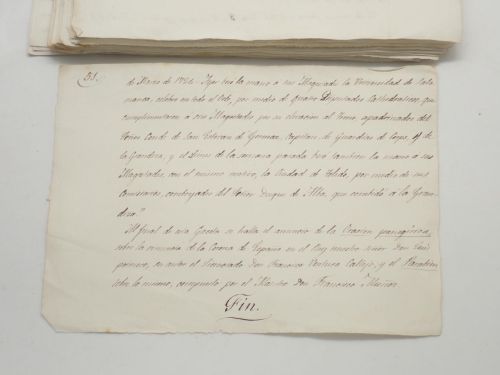 51.
de Marzo de 1724. Ayer besó la mano a sus Magestades la Universidad de Sala
manca, célebre en todo el Orbe, por medio de Quatro Diputados Cathedraticos, que
cumplimentaron a sus Magestades por su elevacion al Trono, apadrinados del
Señor Conde de San Esteran de Gormaz, Capitan de Guardias de Corps, y de
la Grandeza, y el Lunes de la semana pasada besó tambien la mano a sus
Magestades, con el mismo motivo, la Ciudad de Toledo, por medio de sus
Comisarios, conduzidos del Señor Duque de Alba, que combidó a la Gran
deza."
Al final de esta Gaceta se halla el anuncio de la Oracion panegirica,
sobre la renuncia de la Corona de España en el Rey nuestro Señor Don Luis
primero, su autor el Licenciado Don Francisco Ventura Calleja, y el Parabien
sobre lo mismo, compuesto por el Maestro Don Francisco Muñoz.
Fin.